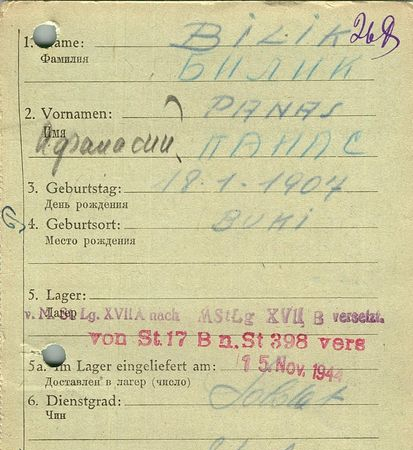 1. Name: BILIK 268
Фамилия БИЛИК
2. Vornamen: PANAS
Имя
Афанасий ПАНАС
3. Geburtstag: 18.1.1907
День рождения
4. Geburtsort: BUKI
Место рождения
5. Lager:
Лагерь
v. M. St. Lg. XVII A nach MStLg XVII B versetzt.
von St.17 B n. St 398 vers
5a. Im Lager eingeliefert am: 15. Nov. 1944
Доставлен в лагерь (число)
6. Dienstgrad: Soldat
Чин